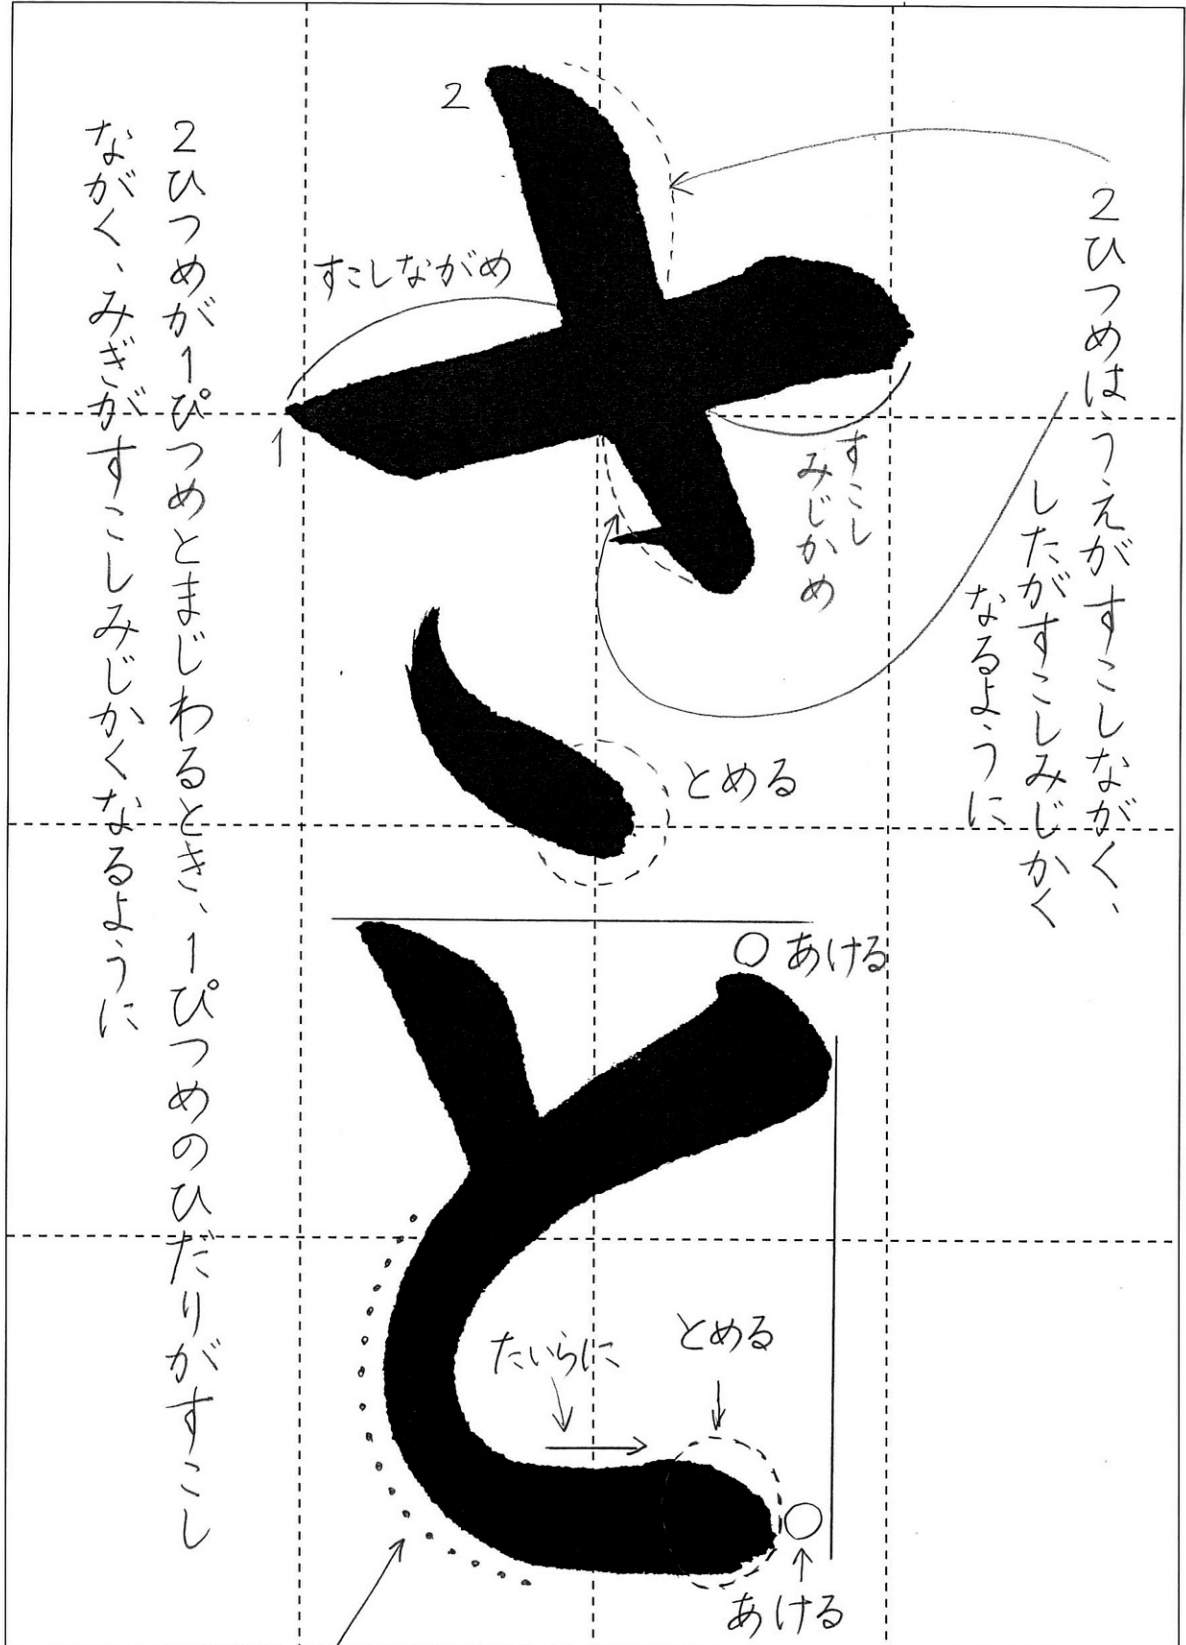 さと
2ひつめは、うえがすこしながく、
したがすこしみじかく
なるように
2
すこしながめ
1
すこし
みじかめ
とめる
○あける
たいらに
とめる
○
あける
2ひつめが1ぴつめとまじわるとき、1ぴつめのひだりがすこし
ながく、みぎがすこしみじかくなるように